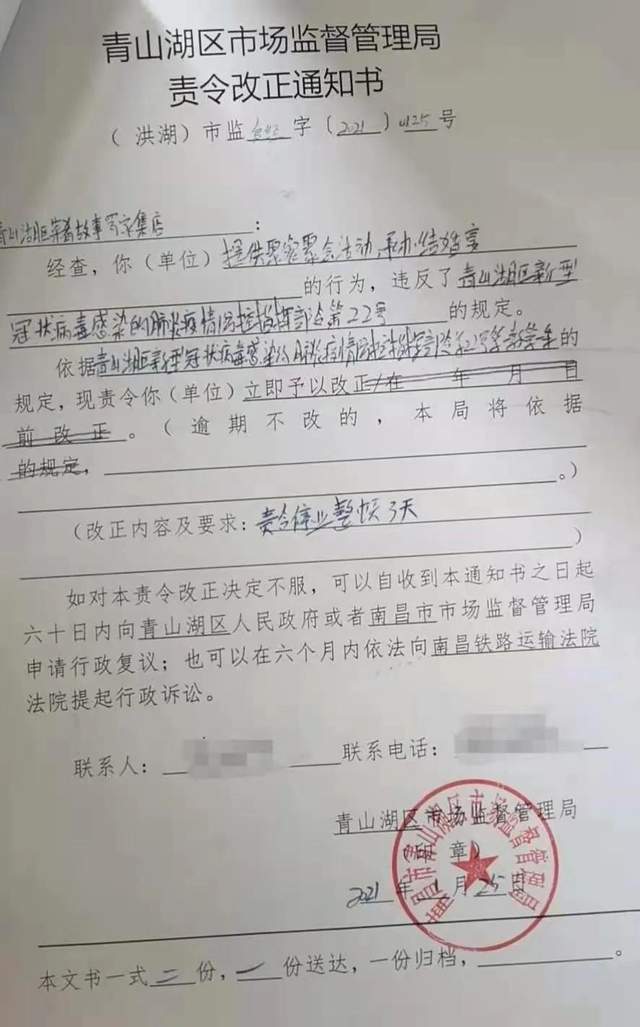 青山湖区市场监督管理局
责令改正通知书
（洪湖）市监 字〔2021〕0125号
青山湖区 故事 店：
经查，你（单位）提供聚餐聚会活动，承办结婚宴
的行为，违反了青山湖区新型
冠状病毒感染的肺炎疫情防控指挥部令第22号的规定。
依据青山湖区新型冠状病毒感染的肺炎疫情防控指挥部令第22号 的
规定，现责令你（单位）立即予以改正/在 年 月 日
前改正。（逾期不改的，本局将依据
的规定， 。）
（改正内容及要求：责令停业整顿3天
）
如对本责令改正决定不服，可以自收到本通知书之日起
六十日内向青山湖区人民政府或者南昌市市场监督管理局
申请行政复议；也可以在六个月内依法向南昌铁路运输法院
法院提起行政诉讼。
联系人： 联系电话：
青山湖区市场监督管理局
（印章）
2021年1月25日
本文书一式二份，一份送达，一份归档， 。